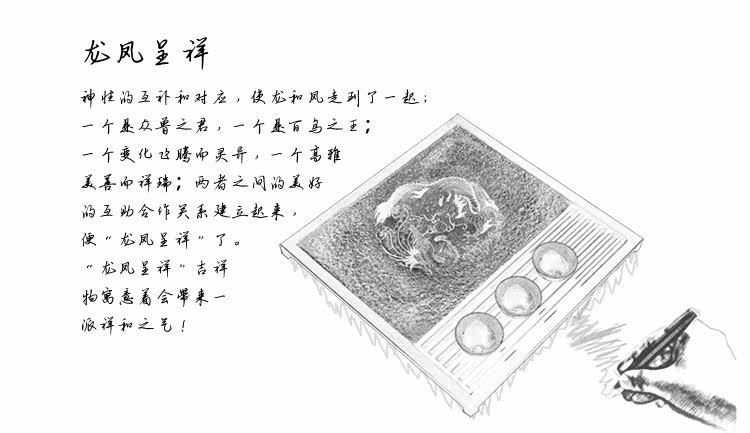 龙凤呈祥
神性的互补和对应，使龙和凤走到了一起；
一个是众兽之君，一个是百鸟之王；
一个变化飞腾而灵异，一个高雅
美善而祥瑞；两者之间的美好
的互助合作关系建立起来，
便“龙凤呈祥”了。
“龙凤呈祥”吉祥
物寓意着会带来一
派祥和之气！